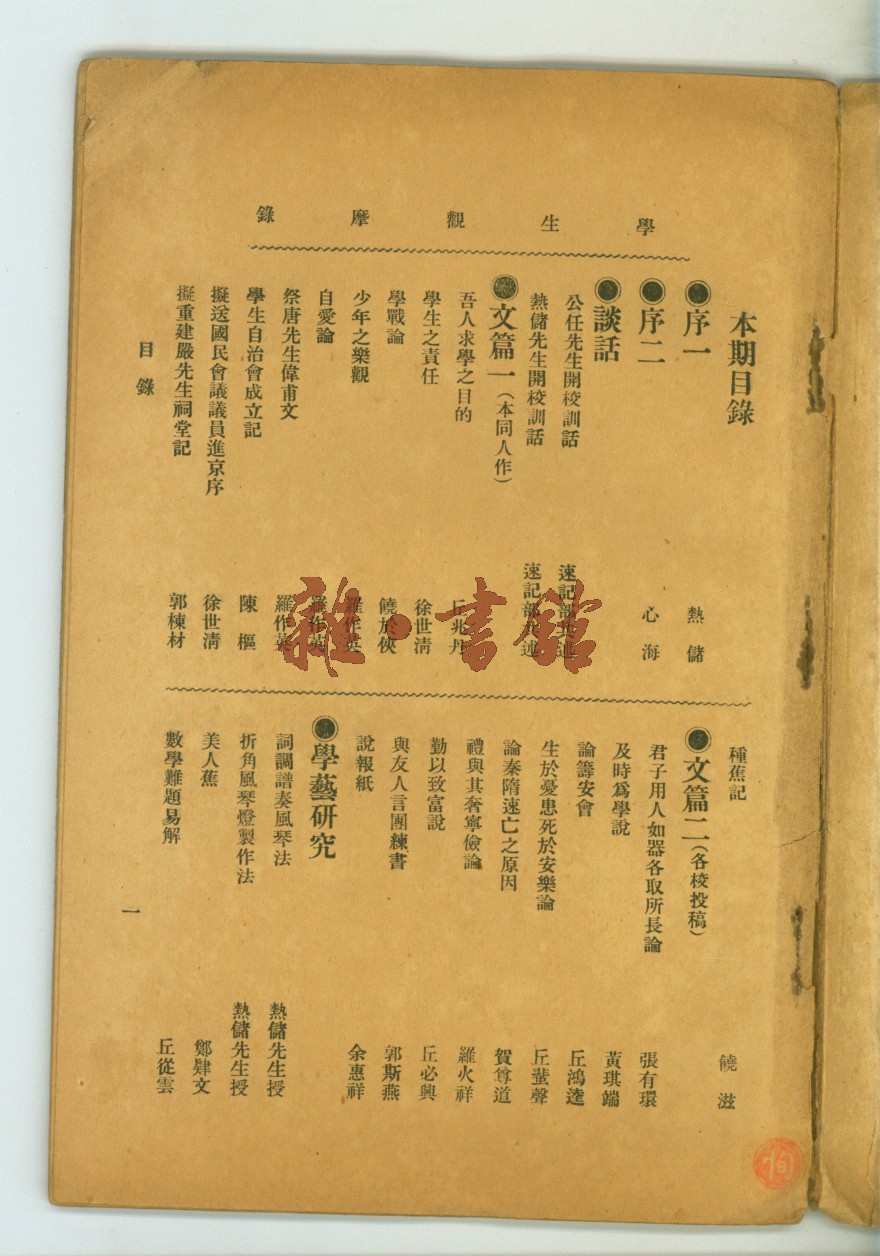 學生觀摩錄
本期目錄
●序一 熱儲
●序二 心海
●談話
公任先生開校訓話 速記部共述
熱儲先生開校訓話 速記部共述
●文篇一(本同人作)
吾人求學之目的 丘兆丹
學生之責任 徐世淸
學戰論 饒於俠
少年之樂觀 羅作英
自愛論 羅作英
祭唐先生偉甫文 羅作英
學生自治會成立記 陳樞
擬送國民會議議員進京序 徐世淸
擬重建嚴先生祠堂記 郭棟材
種蕉記 饒滋
●文篇二(各校投稿)
君子用人如器各取所長論 張有環
及時爲學說 黃琪端
論籌安會 丘鴻逵
生於憂患死於安樂論 丘蜚聲
論秦隋速亡之原因 賀尊道
禮與其奢寧儉論 羅火祥
勤以致富說 丘必興
與友人言團練書 郭斯燕
說報紙 余惠祥
●學藝硏究
詞調譜奏風琴法 熱儲先生授
折角風琴燈製作法 熱儲先生授
美人蕉 鄭肄文
數學難題易解 丘從雲
目錄
一
雜·書館